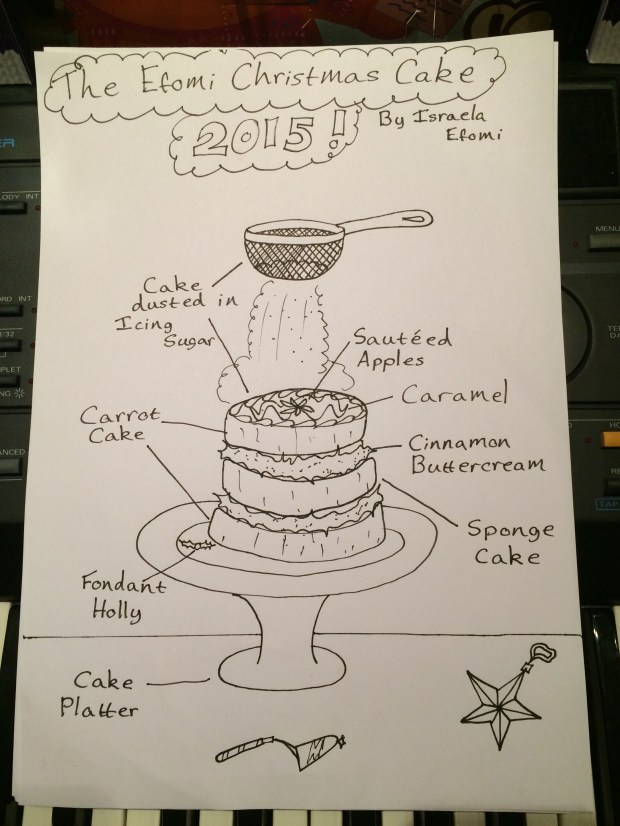 The Efomi Christmas Cake
2015!
By Israela
Efomi
Cake
dusted in
Icing
Sugar
Sautéed
Apples
Caramel
Carrot
Cake
Cinnamon
Buttercream
Sponge
Cake
Fondant
Holly
Cake
Platter
MENU